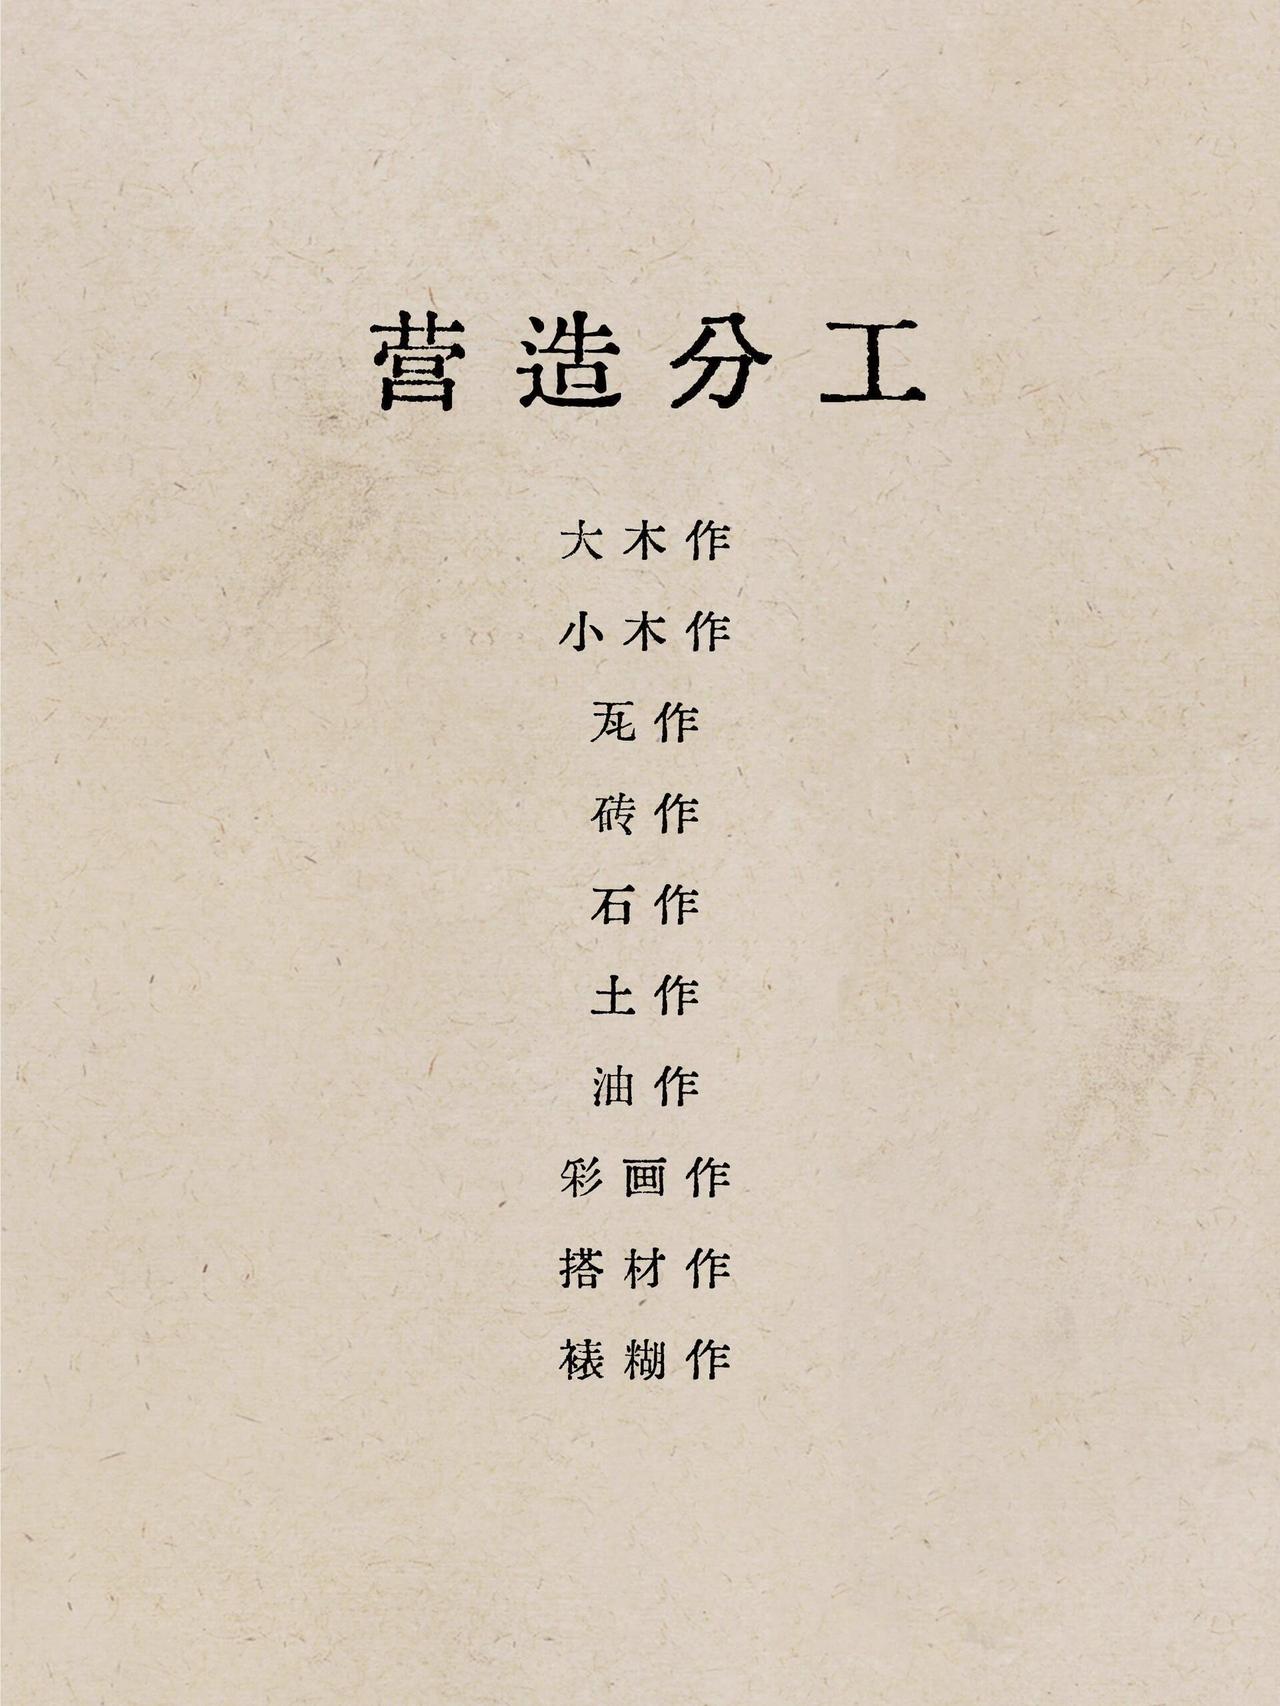 营造分工
大木作
小木作
瓦作
砖作
石作
土作
油作
彩画作
搭材作
裱糊作